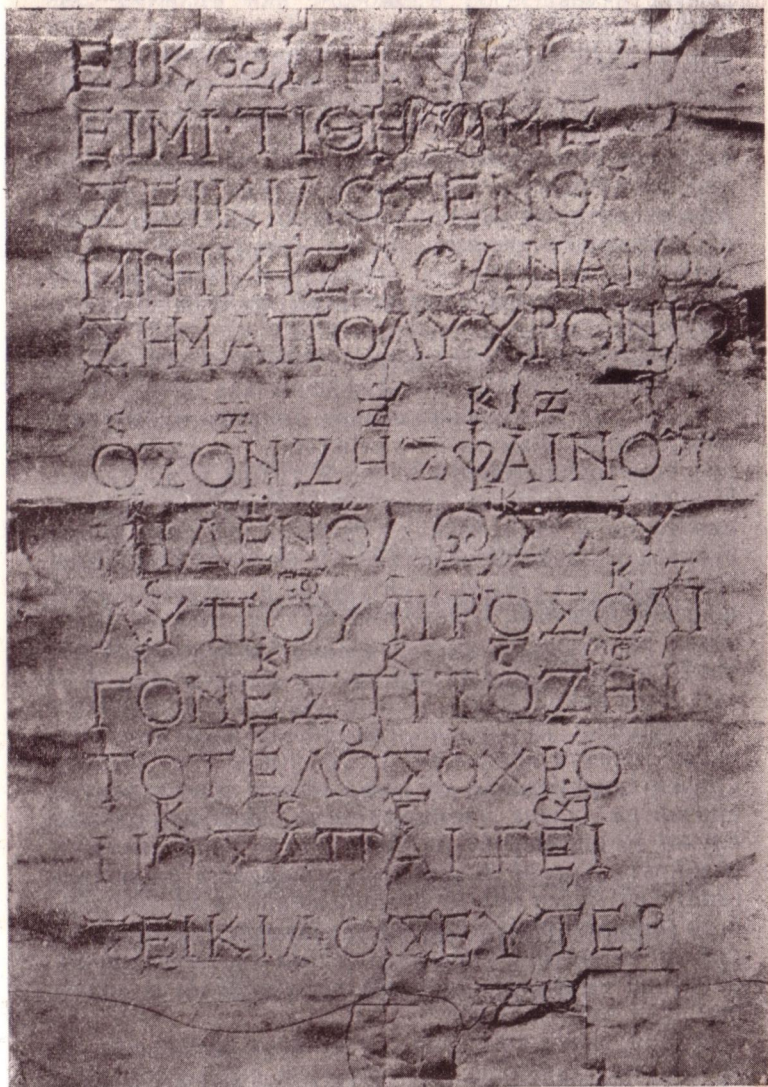 ΕΙΚΩΝΗΛΙΘΟΣ
ΕΙΜΙ·ΤΙΘΗΣΙΜΕ
ΣΕΙΚΙΛΟΣΕΝΘΑ
ΜΝΗΜΗΣΑΘΑΝΑΤΟΥ
ΣΗΜΑΠΟΛΥΧΡΟΝΙΟΝ
C Ζ Ζ ΚΙΖ
ΟΣΟΝΖΗΣΦΑΙΝΟΥ
ΜΗΔΕΝΟΛΩΣΣΥ
Κ Ζ
ΛΥΠΟΥΠΡΟΣΟΛΙ
Ι Κ Κ C
ΓΟΝΕΣΤΙΤΟΖΗΝ
ΤΟΤΕΛΟΣΟΧΡΟ
Κ C
ΝΟΣΑΠΑΙΤΕΙ
ΣΕΙΚΙΛΟΣΕΥΤΕΡ